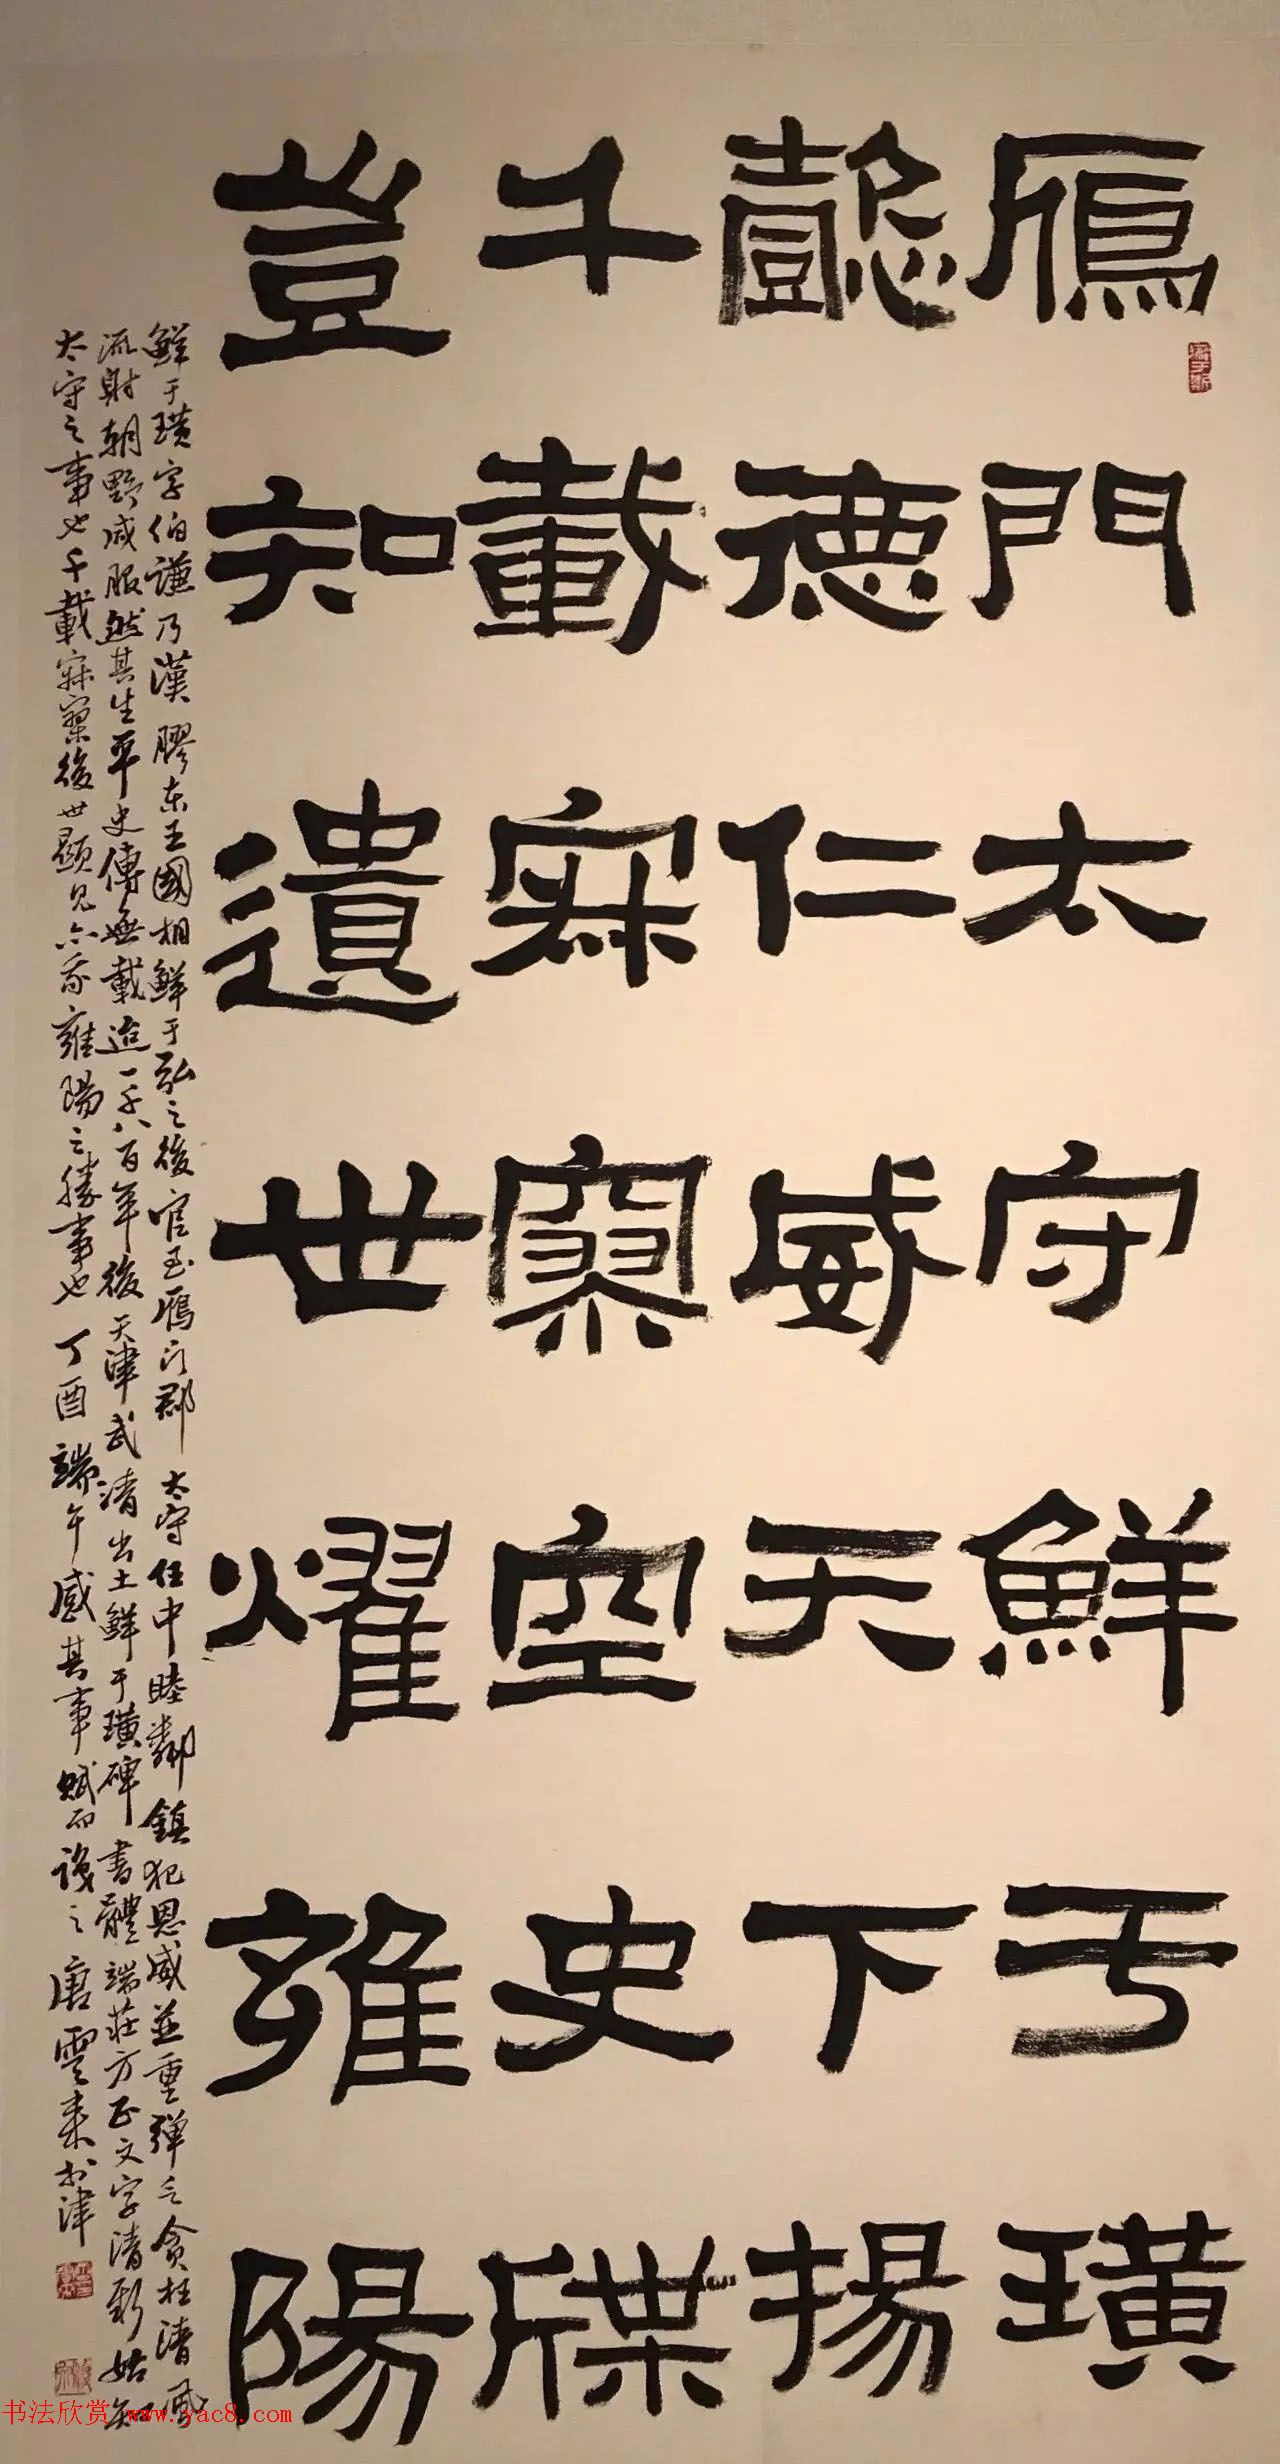 鴈門太守鮮于璜
懿德仁威天下揚
千載寂寞空史牒
豈知遺世耀雍陽
鮮于璜字伯謙乃漢膠東王國相鮮于弘之後官至鴈门郡太守任中睦鄰鎮犯恩威並重彈之貪枉清風
流射朝野咸服然其生平史傳無載迨一千八百年後天津武清出土鮮于璜碑書體端莊方正文字清新始知
太守之事也千載寂寞後世顯見亦為雍陽之勝事也丁酉端午感其事賦而識之唐雲來於津
书法欣赏 www.yac8.com